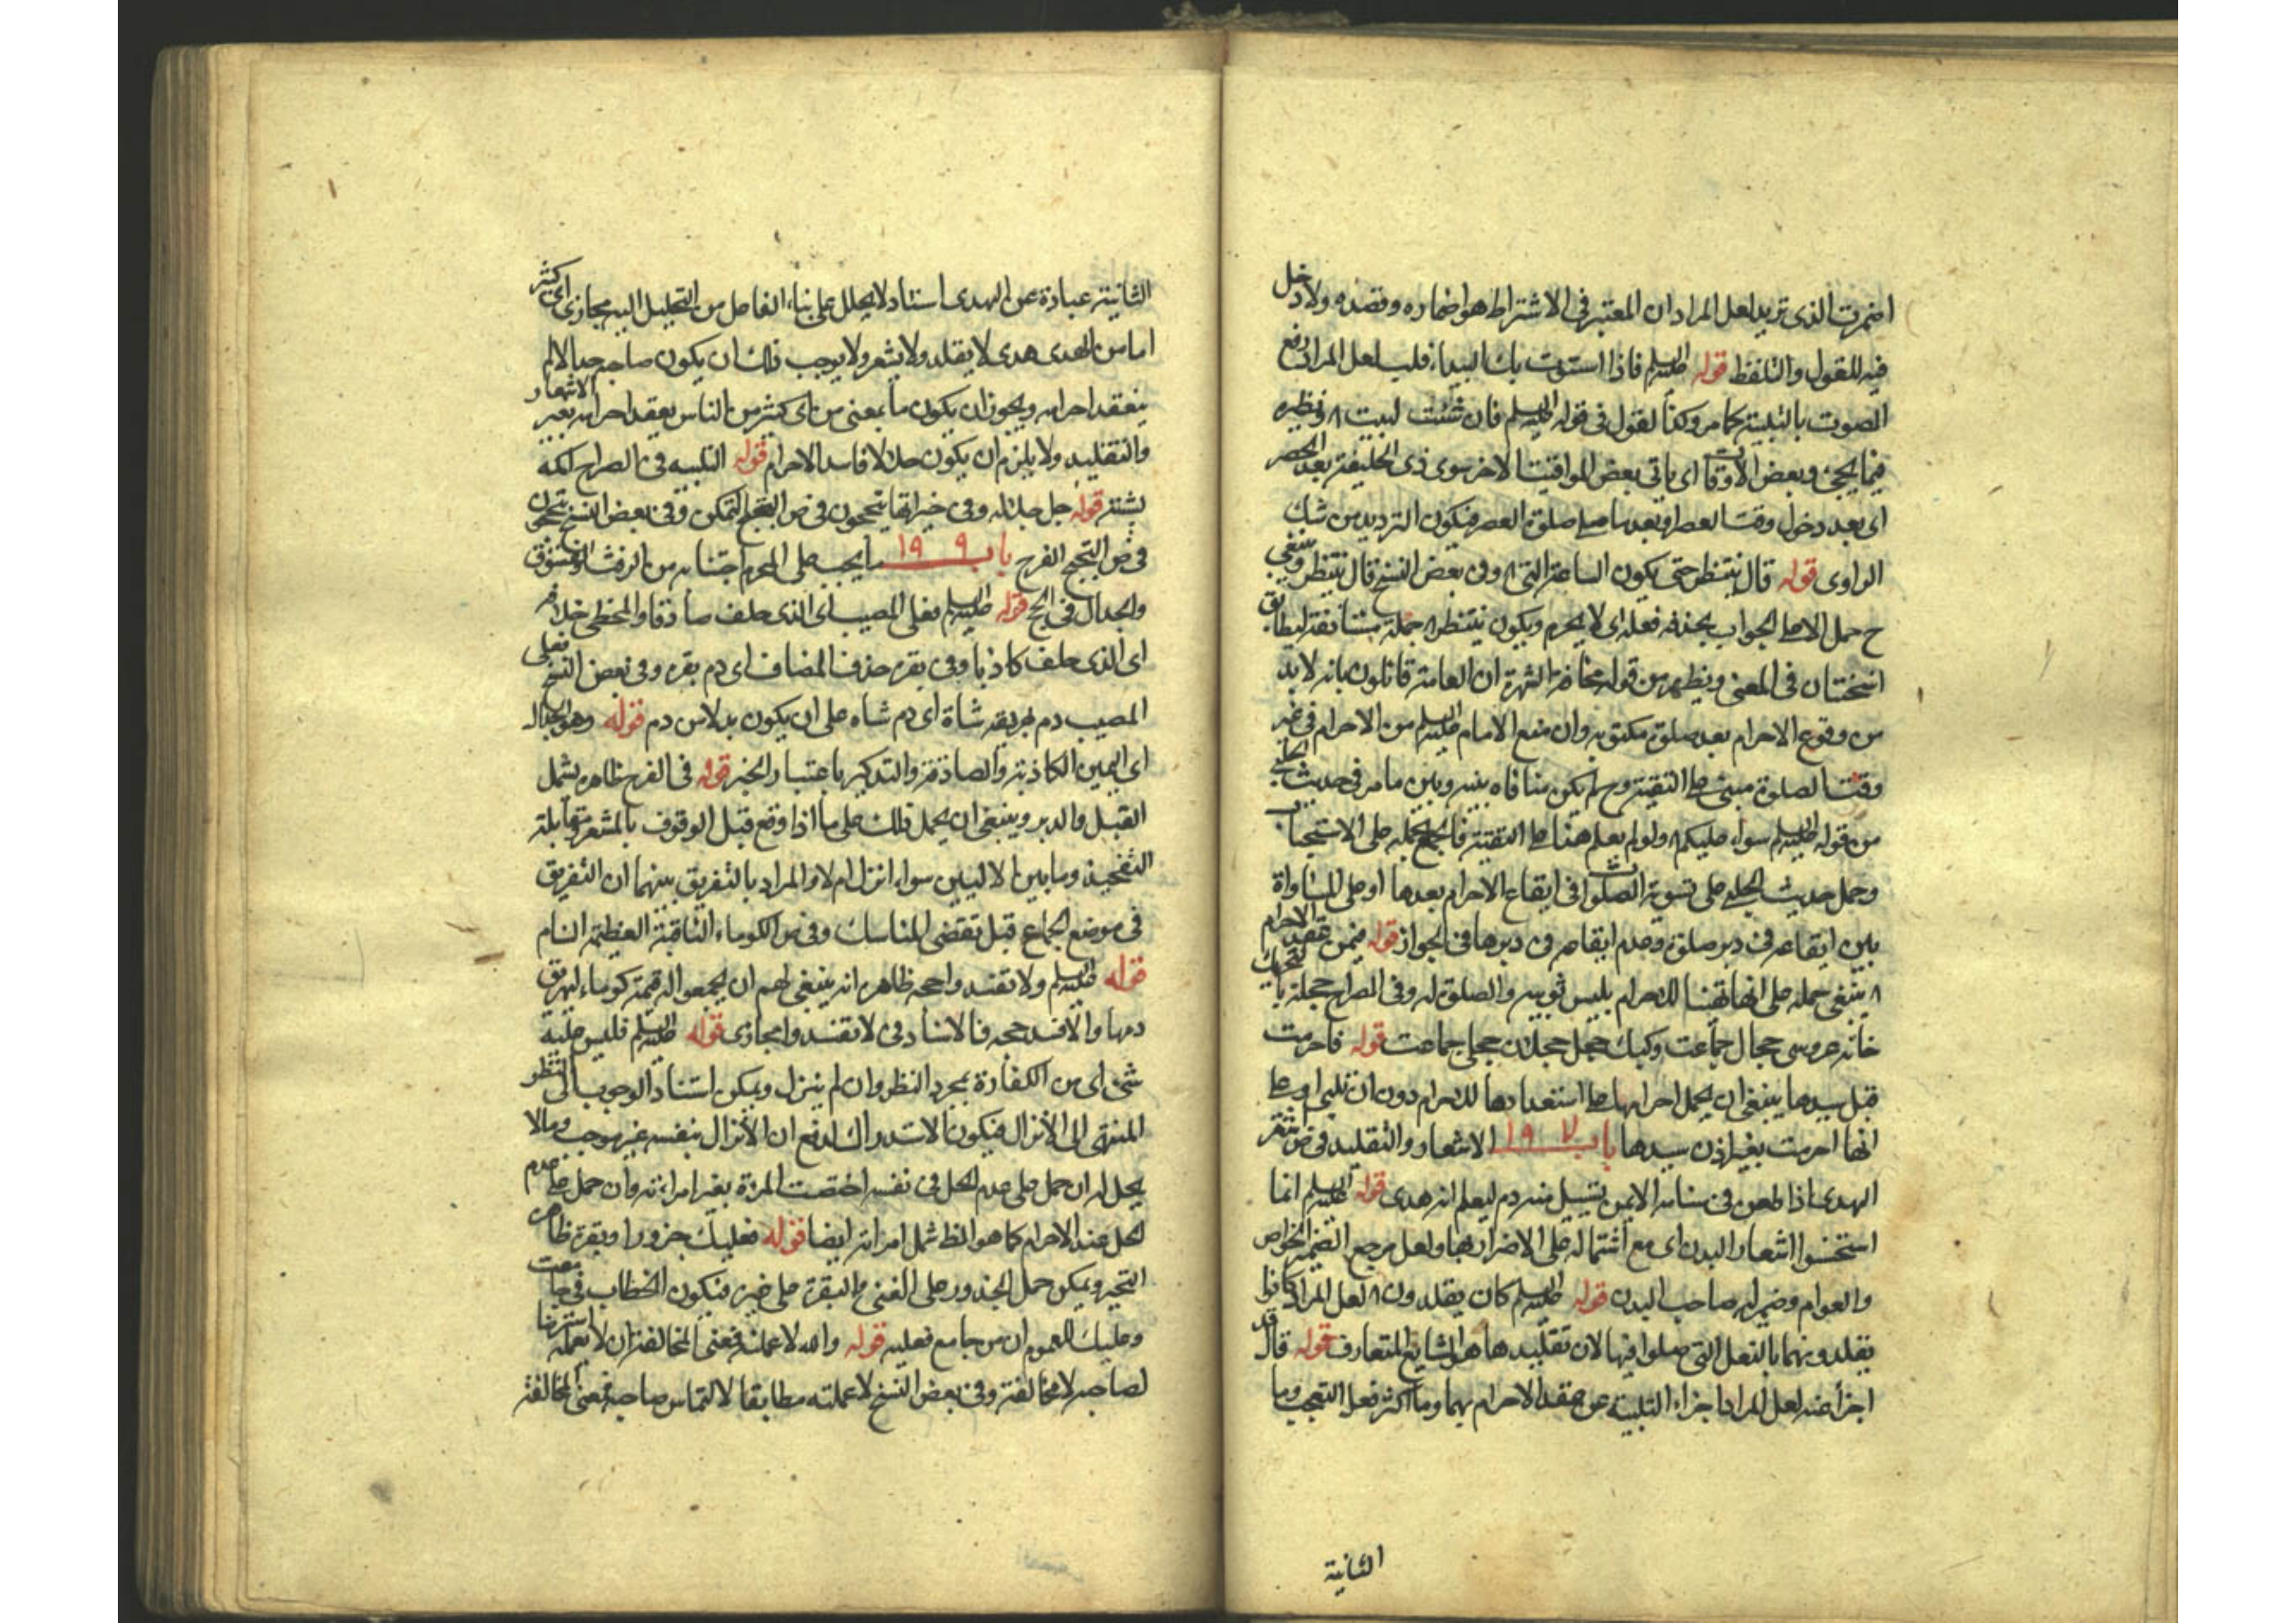 اضمرت الذى تريد لعل المراد ان المعتبر فى الاشتراط هو اضماره وقصده ولا دخل
فيه للقول والتلفظ قوله عليه السلم فاذا استوت بك البيداء فلب لعل المراد رفع
الصوت بالتلبية كما مر وكذا القول فى قوله عليه السلم فان شئت لبيت ونظيره
فيما يجئ وبعض الاوقات اى ياتى بعض المواقيت الاخر سوى ذى الحليفة بعد العصر
اى بعد دخول وقت العصر او بعد ما صلى صلوة العصر فيكون الترديد من شك
الراوى قوله قال ينتظر حتى يكون الساعة التى وفى بعض النسخ قال ينتظر وينبغى
ح حمل الا على الجواب بحذف فعله اى لا يحرم ويكون ينتظر جملة مستأنفة ليطابق
النسختان فى المعنى ويظهر من قوله مخافة الشهرة ان العامة قائلون بانه لا بد
من وقوع الاحرام بعد صلوة مكتوبة وان منع الامام عليه السلم من الاحرام فى غير
وقت الصلوة مبنى على التقية وح لم يكن منافاه بينه وبين ما مر فى حديث الحلبى
من قوله عليه السلم سواء عليكم ولو لم يعلم هنا على التقية فالجمع بحمله على الاستحباب
وحمل حديث الحلبى على تسوية الصلوات فى ايقاع الاحرام بعدها او على المساواة
بين ايقاعه فى دبر صلوة وعدم ايقاعه فى دبرها فى الجواز قوله فيمن عقد الاحرام
ينبغى حمله على انها تهيأ للاحرام بلبس ثوبيه والصلوة له وفى الصراح حجلة بالتحريك
خانه عروسى حجال جماعت وكبك حجل حجلان حجلى جماعت قوله فاحرمت
قبل سيدها ينبغى ان يحمل احرامها على استعدادها للاحرام دون ان تلبى او على
انها احرمت بغير اذن سيدها باب ١٩٧ الاشعار والتقليد فى ص شعر
الهدى اذا طعن فى سنامه الايمن يسيل منه دم ليعلم انه هدى قوله عليه السلم انما
استحسنوا اشعار البدن اى مع اشتماله على الاضرار بها ولعل مرجع الضمير الخواص
والعوام وضمير له صاحب البدن قوله عليه السلم كان يقلدون لعل المراد كانوا
يقلدونهما بالنعل التى صلوا فيها لان تقليدها هو الشايع المتعارف قوله قال قد
اجزأ عنه لعل المراد اجزاء التلبية عن عقد الاحرام بهما وما اكثر فعل التعجب وما
الثانية
الثانية عبارة عن الهدى استناد لا يحلل على بناء الفاعل من التحليل اليه مجازى اى كثير
اما من الهدى هدى لا يقلد ولا يشعر ولا يوجب ذلك ان يكون صاحبه حلالا لم
ينعقد احرامه ويجوز ان يكون ما بمعنى من اى كثير من الناس يعقد احرامه بغير الاشعار
والتقليد ولا يلزم ان يكون حلالا فاسد الاحرام قوله التلبسه فى الصراح
قوله جل جلاله وفى خيراتها يتبحبحون فى ص التبحبح التمكن وفى بعض النسخ يتبجحون
فى ص التبجح الفرح باب ١٩٩ ما يجب على المحرم اجتنابه من الرفث والفسوق
والجدال فى الحج قوله عليه السلم فعلى المصيب اى الذى حلف صادقا والمخطى خلافه
اى الذى حلف كاذبا وفى بقره حذف المضاف اى دم بقره وفى بعض النسخ فعلى
المصيب دم يهريقه شاة اى دم شاه على ان يكون بدلا من دم قوله وهو الجدال
اى اليمين الكاذبة والصادقة والتذكير باعتبار الخبر قوله فى الفرج ظاهره يشمل
القبل والدبر وينبغى ان يحمل ذلك على ما اذا وقع قبل الوقوف بالمشعر ومقابلته
التفخيذ وما بين الاليين سواء انزل ام لا والمراد بالتفريق بينهما ان التفريق
فى موضع الجماع قبل تقضى المناسك وفى ص الكوماء الناقة العظيمة السنام
قوله عليه السلم ولا تفسدوا حجه ظاهره انه ينبغى لهم ان يجمعوا له قيمة كوماء ليهريق
دمها والا فسد حجه فالاسناد فى لا تفسدوا مجازى قوله عليه السلم فليس عليه
شئ اى من الكفارة بمجرد النظر وان لم ينزل ويمكن استناد الوجوب الى النظر
المنتهى الى الانزال فيكون الاستدراك لدفع ان الانزال بنفسه غير موجب وما لا
يحل له ان حمل على عدم الحل فى نفسه اختصت المرءة بغير امراءته وان حمل على عدم
الحل عند الاحرام كما هو الظ شمل امراته ايضا قوله فعليك جزور او بقرة ظاهره
التخير ويمكن حمل الجزور على الغنى والبقرة على غيره فيكون الخطاب فى جامعت
وعليك للعموم اى من جامع فعليه قوله والله لا عملنه فمعنى المخالفة ان لا يعمله استرضا
لصاحبه لا مخالفته وفى بعض النسخ لا عملته مطابقا لالتماس صاحبه فمعنى المخالفة